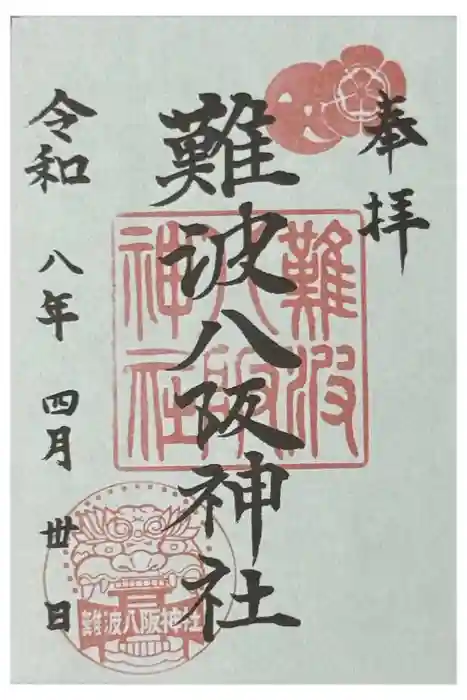 奉拝
難波八阪神社
難波
八阪
神社
令和八年四月卅日
難波八阪神社